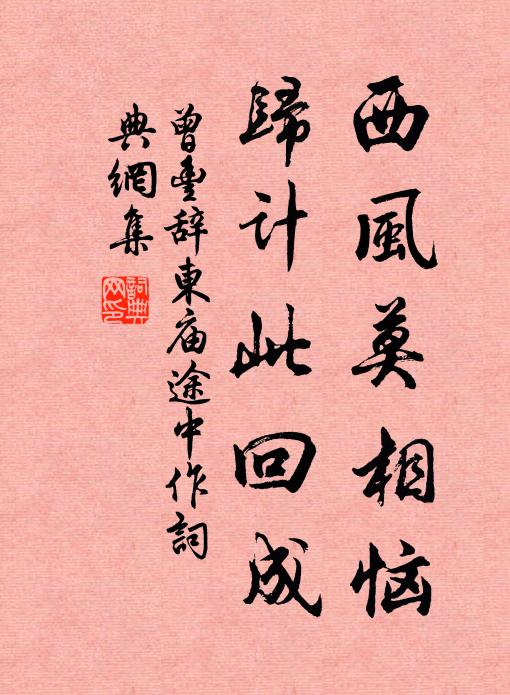 西風莫相恼
歸計此回成
曾豊辞東庙途中作詞
典網集
詞典网印